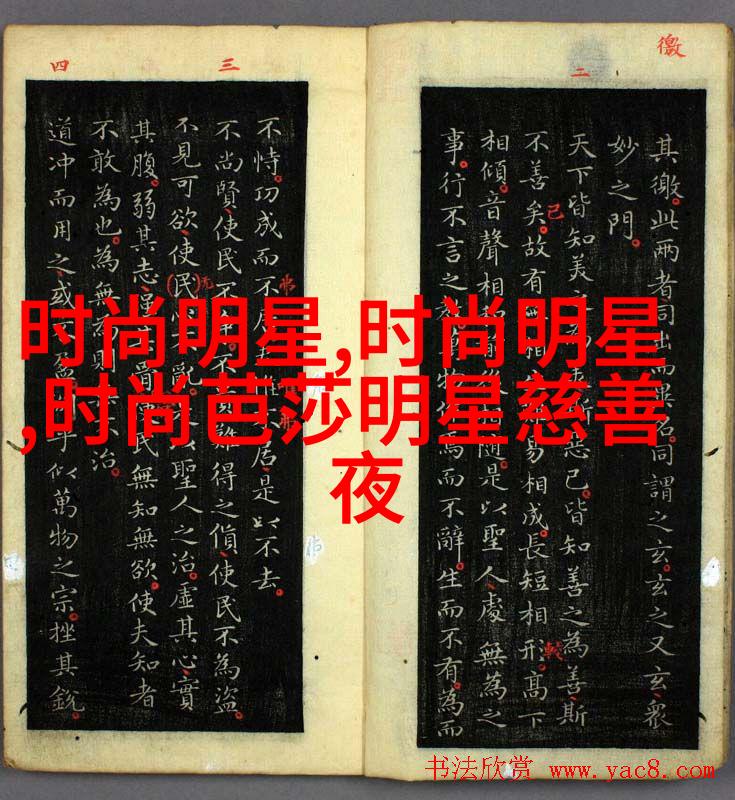 时尚明星,时尚明星
,时尚芭莎明星慈善
夜
徼
二
其徼此两者同出而異名同謂之玄玄之又玄衆
妙之門
天下皆知美之美斯惡已皆知善之為善斯
不善矣故有無相易相成長短相形高下
相傾音聲相隨是以聖人處無為之
事行不言之物作焉而不辭生而不有為而
三
四
不恃功成而不居不居是以不去
不尚賢使民不不難得之貨使民不為盜
不見可欲使民不亂聖人之治虛其心實
其腹弱其志骨使民無知無欲使夫知者
不敢為也為無則治
道冲而用之或乎似萬物之宗挫其銳
书法欣赏 www.yac8.com